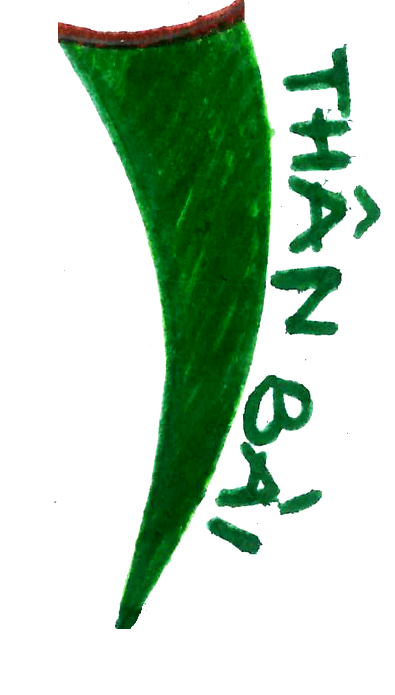 THÂN BÀI